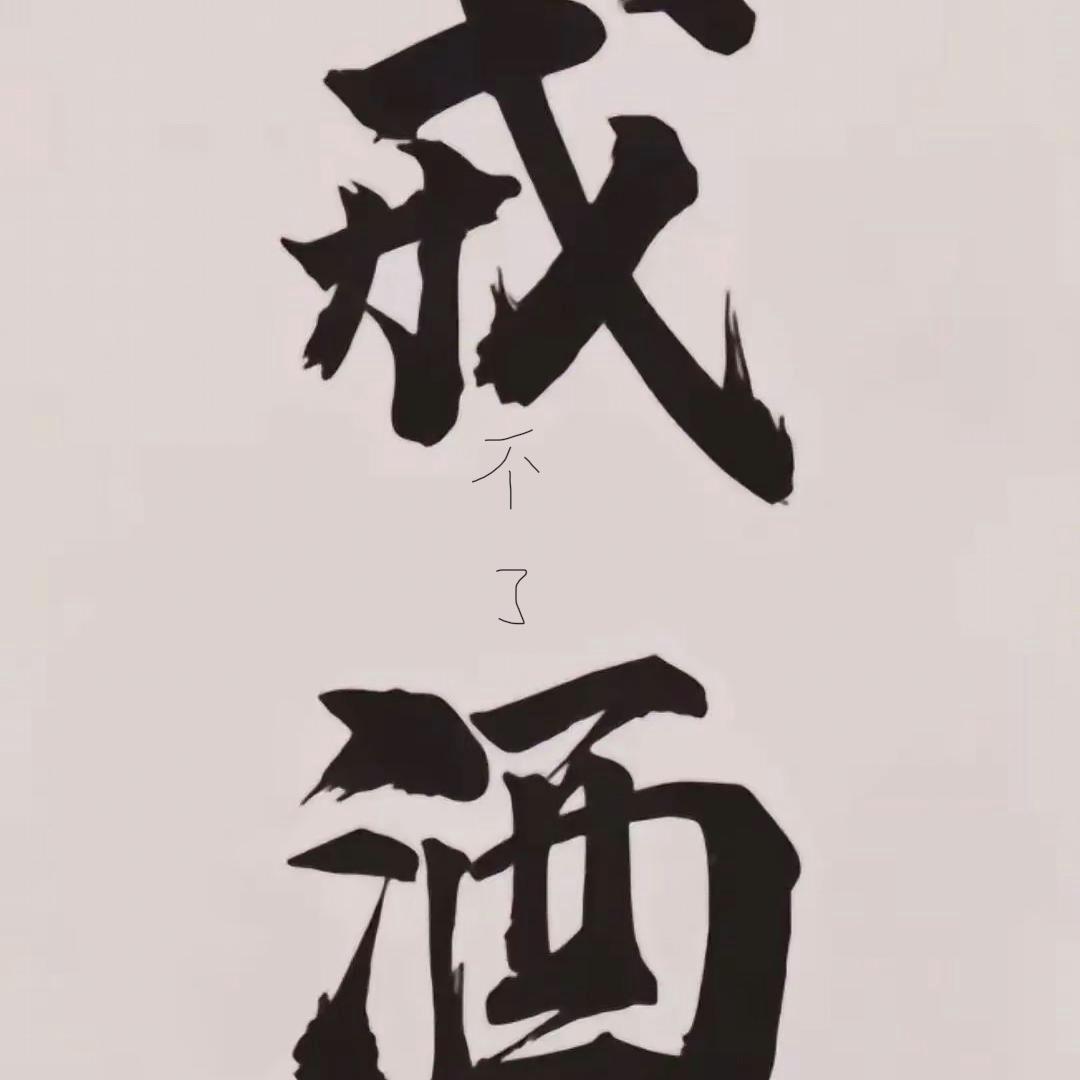 戒
不
了
酒